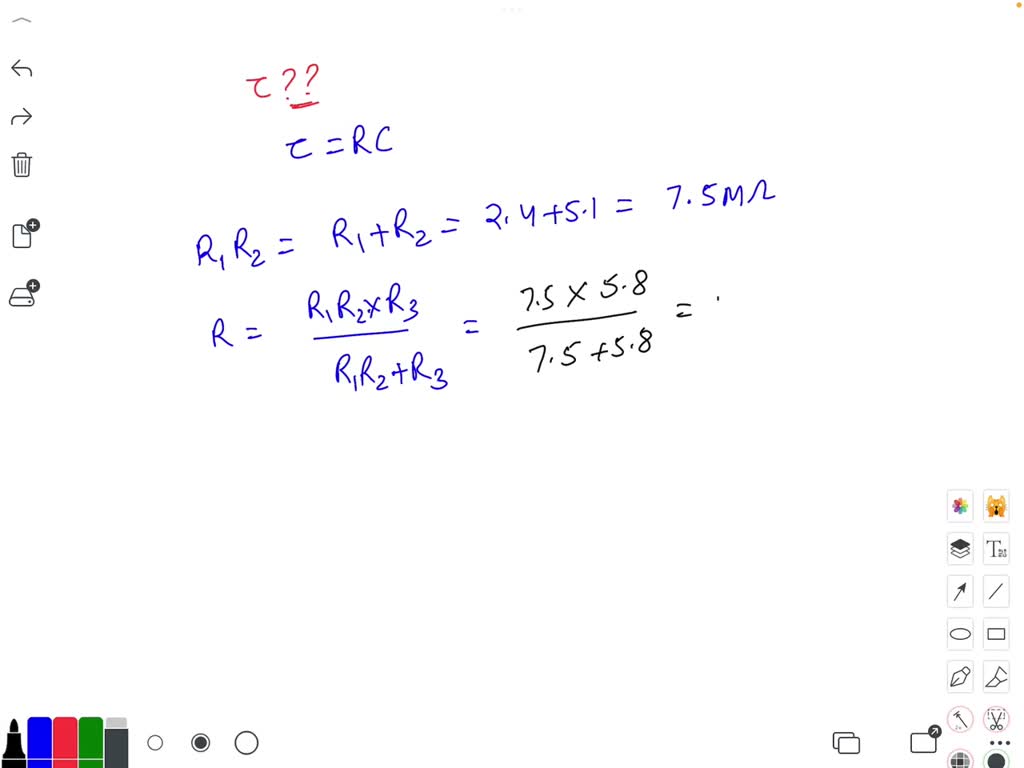 τ ??
τ = RC
R₁R₂ = R₁+R₂ = 2.4+5.1 = 7.5MΩ
R = R₁R₂×R₃ / R₁R₂+R₃ = 7.5 × 5.8 / 7.5 +5.8 =